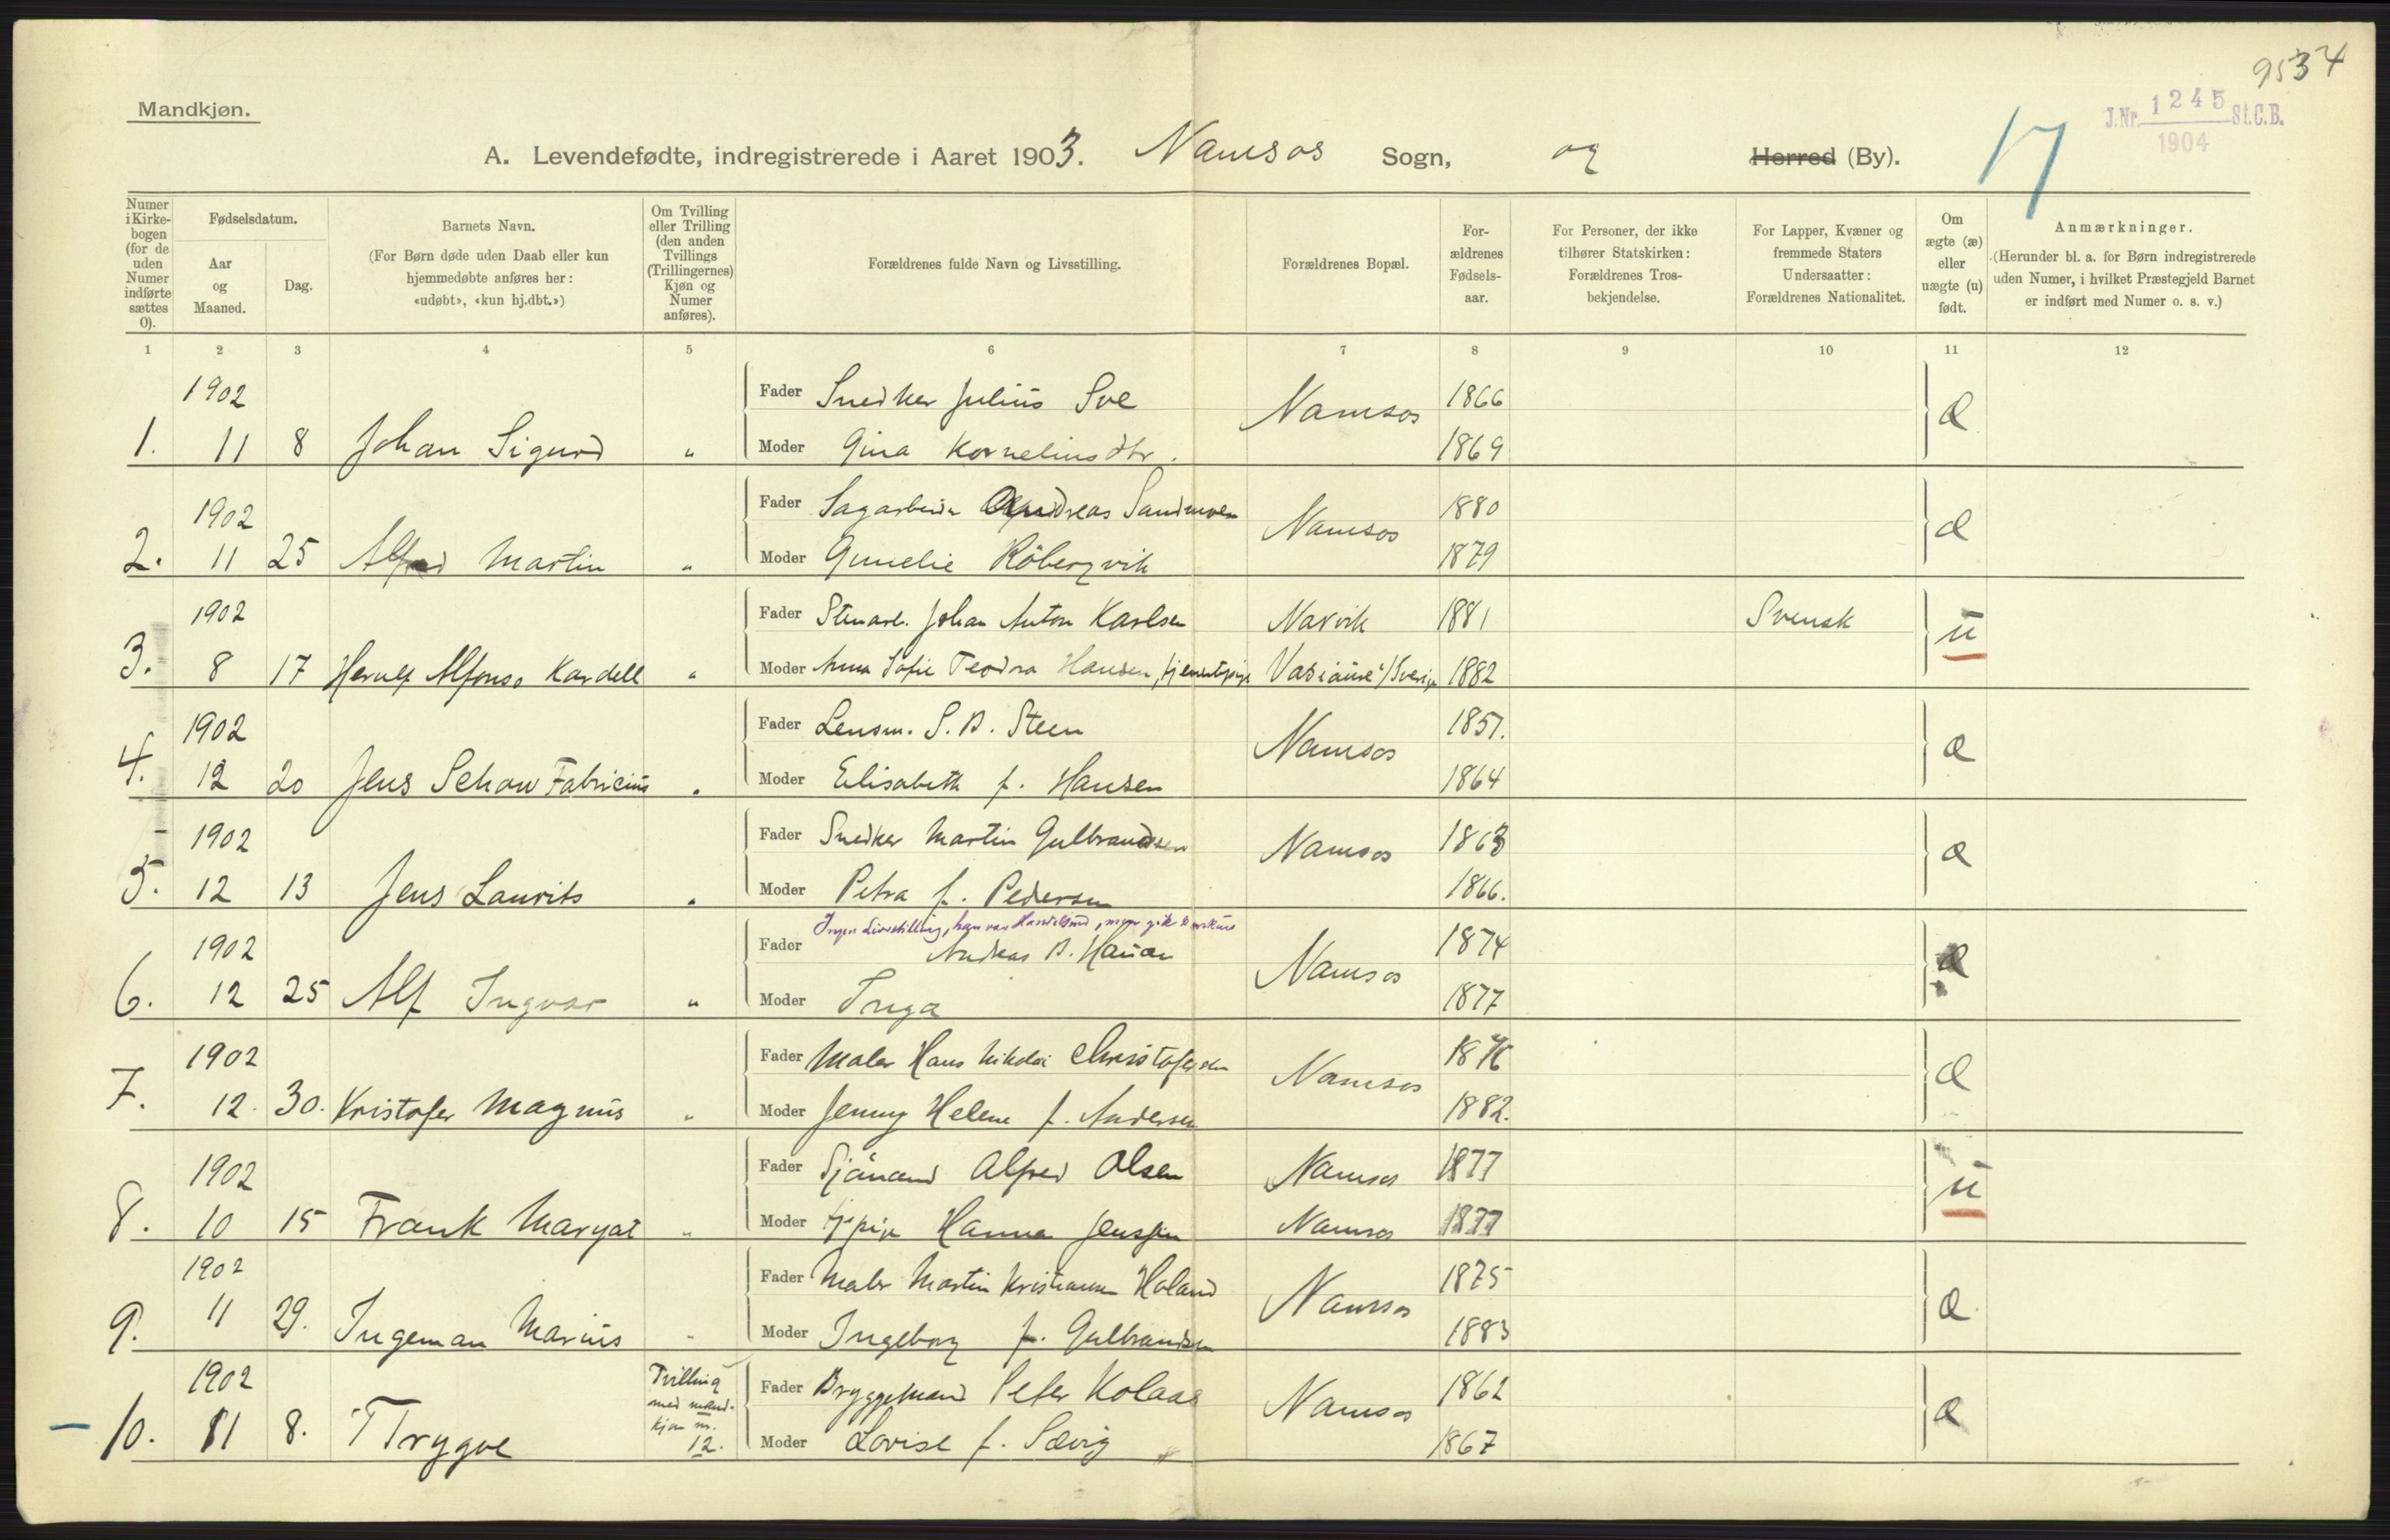 9534
J.Nr. 1245 St.C.B.
1904
17
Mandkjøn.
A. Levendefødte, indregistrerede i Aaret 1903. Namsos Sogn, og Herred (By).
Numer i Kirkebogen (for de uden Numer indførte sættes 0).
Fødselsdatum.
Aar og Maaned.
Dag.
Barnets Navn.
(For Børn døde uden Daab eller kun
hjemmedøbte anføres her:
«udøbt», «kun hj.dbt.»)
Om Tvilling
eller Trilling
(den anden
Tvillings
(Trillingernes)
Kjøn og
Numer
anføres).
Forældrenes fulde Navn og Livsstilling.
Forældrenes Bopæl.
For-
ældrenes
Fødsels-
aar.
For Personer, der ikke
tilhører Statskirken:
Forældrenes Tros-
bekjendelse.
For Lapper, Kvæner og
fremmede Staters
Undersaatter:
Forældrenes Nationalitet.
Om
ægte (æ)
eller
uægte (u)
født.
Anmærkninger.
(Herunder bl. a. for Børn indregistrerede
uden Numer, i hvilket Præstegjeld Barnet
er indført med Numer o. s. v.)
1 2 3 4 5 6 7 8 9 10 11 12
1902 Fader Snedker Julius Sve Namsos 1866 æ
1. 11 8 Johan Sigurd " Moder Gina Korneliusdtr. 1869
1902 Fader Sagarbeider Andreas Sandmoen Namsos 1880 æ
2. 11 25 Alfred Martin " Moder Gunelie Röbergvik 1879
1902 Fader Stenarb. Johan Anton Karlsen Narvik 1881 Svensk u
3. 8 17 Herulf Alfonso Kardell " Moder Anna Sofie Teodora Hansen, tjenestepige Vasiaure /Sverige 1882
1902 Fader Lensm. S. B. Steen Namsos 1851. æ
4. 12 20 Jens Schow Fabricius " Moder Elisabeth f. Hansen 1864
1902 Fader Snedker Martin Gulbrandsen Namsos 1863 æ
5. 12 13 Jens Laurits " Moder Petra f. Pedersen 1866.
Ingen Livsstilling, han var Handelsmd, men gik konkurs
1902 Fader Andreas B. Hauan Namsos 1874 æ
6. 12 25 Alf Ingvar " Moder Inga 1877
1902 Fader Maler Hans Nikolai Christofersen Namsos 1876 æ
7. 12. 30. Kristofer Magnus " Moder Jenny Helene f. Andersen 1882.
1902 Fader Sjömand Alfred Olsen Namsos 1877 u
8. 10 15 Frank Maryat " Moder Tjpige Hanna Jenssen Namsos 1877
1902 Fader Maler Martin Kristiansen Holand Namsos 1875 æ
9. 11 29. Ingeman Marius " Moder Ingeborg f. Gulbrandsen 1883
1902 Tvilling med mandkjøn nr. 12. Fader Bryggemand Peter Kolaas Namsos 1862 æ
10. 11 8. Trygve Moder Lovise f. Sævig 1867